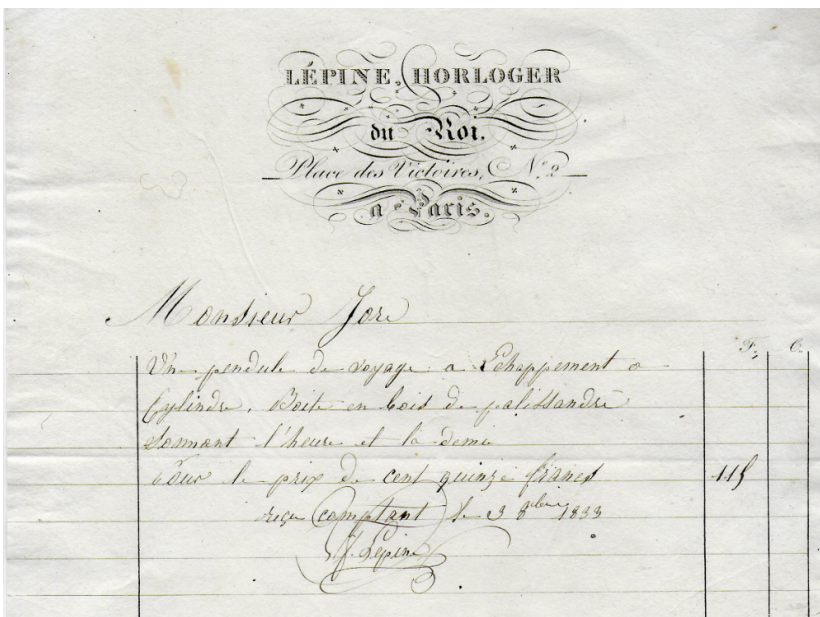 LÉPINE, HORLOGER
du Roi.
Place des Victoires, N.º 2
a Paris.
Monsieur Jore
F. C.
Une pendule de voyage a Echappement a
Cylindre, Boite en bois de palissandre
Sonnant l'heure et la demie
Pour le prix de cent quinze francs 115
reçu comptant le 23 8bre 1833
J. Lépine